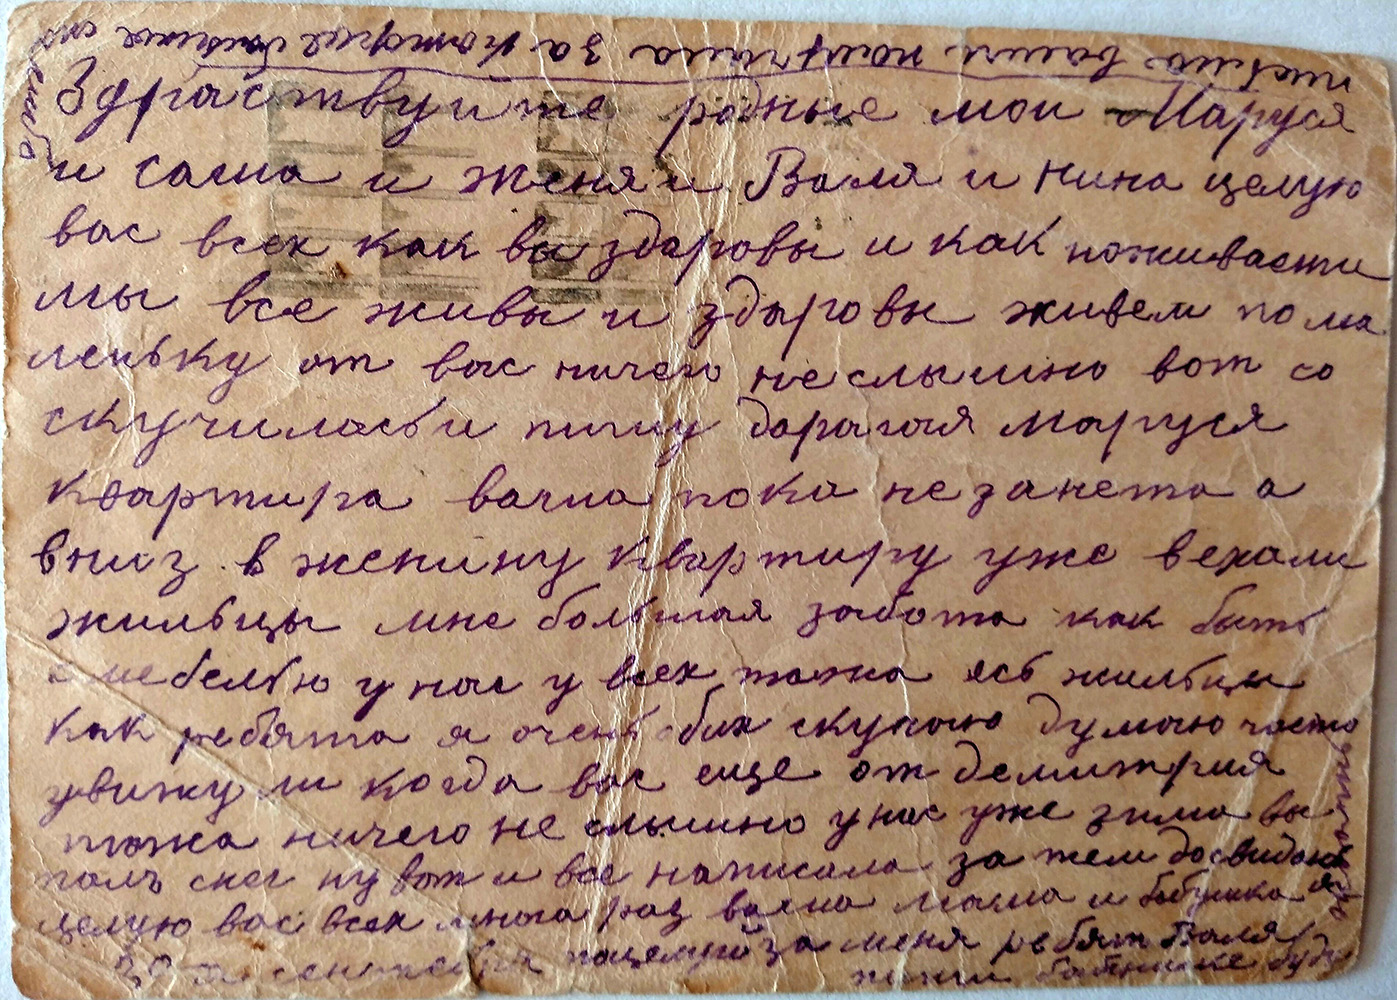 Здраствуите родные мои Маруся
и саша и Женя и Валя и Нина целую
вас всех как вы здаровы и как поживаети
мы все живы и здыровы живем пома
леньку от вас ничего неслышно вот со
скучиласьи пишу дарагая маруся
квартира ваша пока незанета а
вниз в женину квартиру уже вехали
жильцы мне большая забота как быть
с мебелью у нас у всех тожа есь жильцы
как ребята я очень обих скучаю думаю часто
увижу ли когда вас еще от демитрия
тожа ничего не слышно унас уже зима вы
палъ снег ну вот и все написала за тем досвидан
целую вас всех многа раз ваша мама и бабушка
30 го сентебря поцелуй за меня ребят Валя
пиши бабушке буду
ждать
письма ваши получила за которые большие спа
сибо